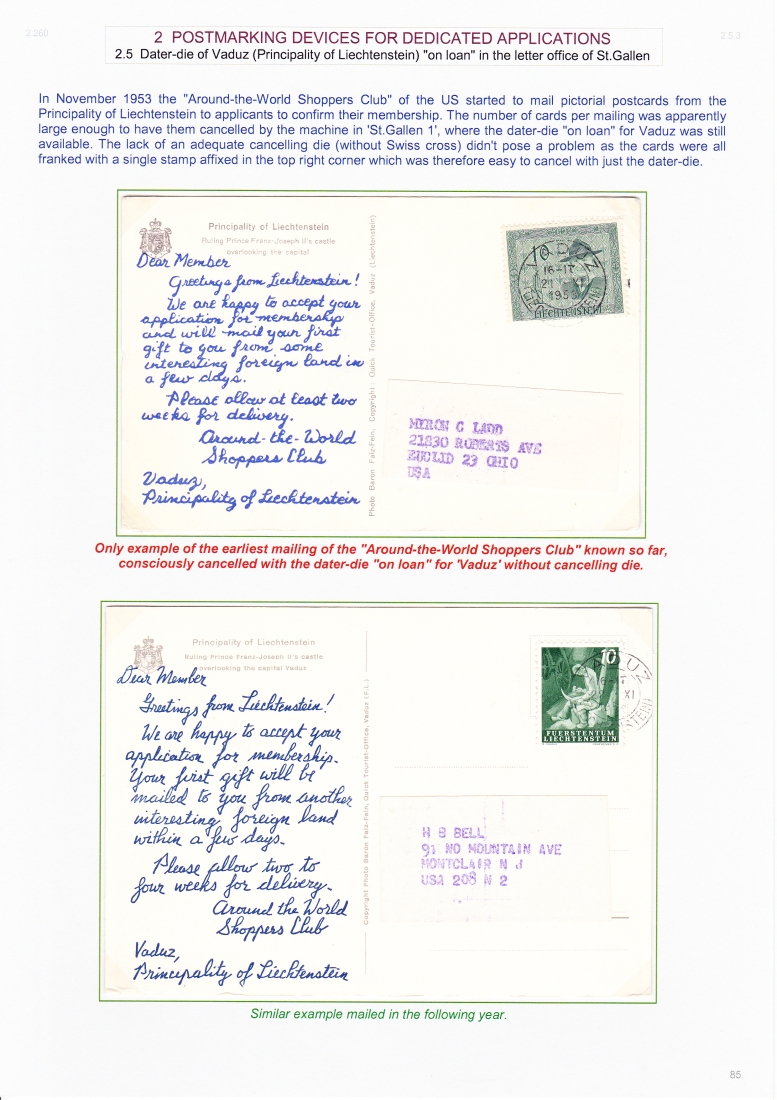 2.260
2.5.3
2 POSTMARKING DEVICES FOR DEDICATED APPLICATIONS
2.5 Dater-die of Vaduz (Principality of Liechtenstein) "on loan" in the letter office of St.Gallen
In November 1953 the "Around-the-World Shoppers Club" of the US started to mail pictorial postcards from the
Principality of Liechtenstein to applicants to confirm their membership. The number of cards per mailing was apparently
large enough to have them cancelled by the machine in 'St.Gallen 1', where the dater-die "on loan" for Vaduz was still
available. The lack of an adequate cancelling die (without Swiss cross) didn't pose a problem as the cards were all
franked with a single stamp affixed in the top right corner which was therefore easy to cancel with just the dater-die.
Principality of Liechtenstein
Ruling Prince Franz-Joseph II's castle
overlooking the capital
Dear Member
Greetings from Liechtenstein!
We are happy to accept your
application for membership
and will mail your first
gift to you from some
interesting foreign land in
a few days.
Please allow at least two
weeks for delivery.
Around-the-World
Shoppers Club
Vaduz,
Principality of Liechtenstein
Photo Baron Falz-Fein, Copyright: Quick Tourist-Office, Vaduz (Liechtenstein)
10
VADUZ
16-17
LIECHTENSTEIN
MYRON C LADD
21830 ROBERTS AVE
EUCLID 23 OHIO
USA
Only example of the earliest mailing of the "Around-the-World Shoppers Club" known so far,
consciously cancelled with the dater-die "on loan" for 'Vaduz' without cancelling die.
Principality of Liechtenstein
Ruling Prince Franz-Joseph II's castle
overlooking the capital Vaduz
Dear Member
Greetings from Liechtenstein!
We are happy to accept your
application for membership.
Your first gift will be
mailed to you from another
interesting foreign land
within a few days.
Please allow two to
four weeks for delivery.
Around the World
Shoppers Club
Vaduz,
Principality of Liechtenstein
Copyright Photo Baron Falz-Fein, Quick Tourist-Office, Vaduz (F.L.)
10
VADUZ
XI
FUERSTENTUM
LIECHTENSTEIN
H B BELL
91 NO MOUNTAIN AVE
MONTCLAIR N J
USA 208 N 2
Similar example mailed in the following year.
85